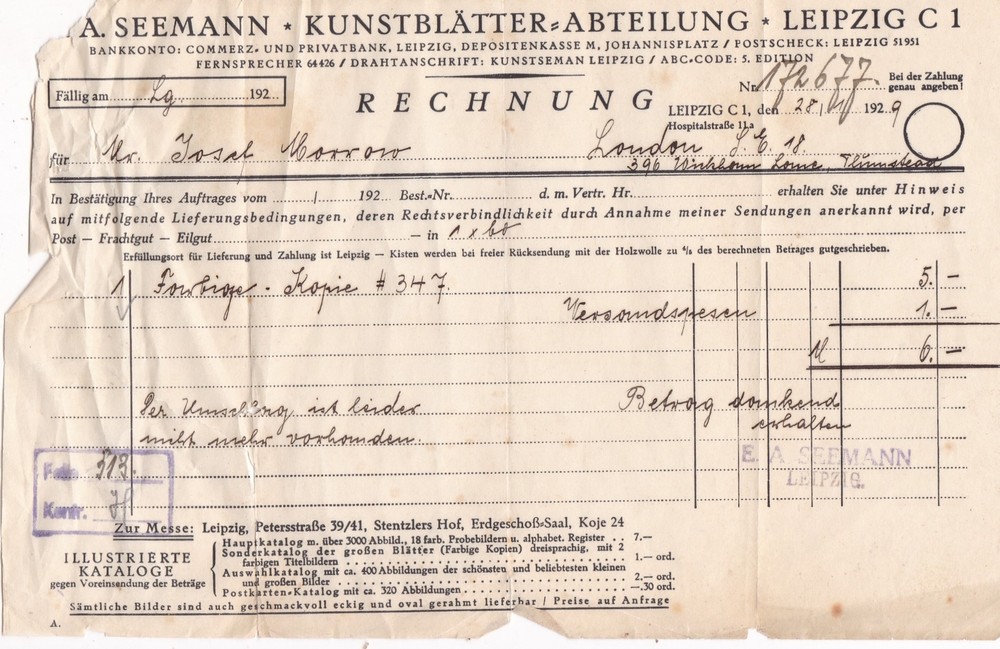 A. SEEMANN * KUNSTBLÄTTER=ABTEILUNG * LEIPZIG C 1
BANKKONTO: COMMERZ- UND PRIVATBANK, LEIPZIG, DEPOSITENKASSE M, JOHANNISPLATZ / POSTSCHECK: LEIPZIG 51951
FERNSPRECHER 64426 / DRAHTANSCHRIFT: KUNSTSEMAN LEIPZIG / ABC-CODE: 5. EDITION
Fällig am Lg 192
RECHNUNG
Nr. 172677. Bei der Zahlung genau angeben!
LEIPZIG C 1, den 28. 1929
Hospitalstraße 11a
für Mr. Josef Morrow London S. E. 18.
396 Wickham Lane, Plumstead
In Bestätigung Ihres Auftrages vom / 192 Best.-Nr. d. m. Vertr. Hr. erhalten Sie unter Hinweis
auf mitfolgende Lieferungsbedingungen, deren Rechtsverbindlichkeit durch Annahme meiner Sendungen anerkannt wird, per
Post — Frachtgut — Eilgut — in 1 x
Erfüllungsort für Lieferung und Zahlung ist Leipzig — Kisten werden bei freier Rücksendung mit der Holzwolle zu 4/5 des berechneten Betrages gutgeschrieben.
1 Farbige - Kopie # 347. 5. —
Versandspesen 1. —
M 6. —
Der Umschlag ist leider Betrag dankend
nicht mehr vorhanden. erhalten
E. A SEEMANN
LEIPZIG.
Fakt. 513.
Kontr.
Zur Messe: Leipzig, Petersstraße 39/41, Stentzlers Hof, Erdgeschoß=Saal, Koje 24
ILLUSTRIERTE KATALOGE
gegen Voreinsendung der Beträge
Hauptkatalog m. über 3000 Abbild., 18 farb. Probebildern u. alphabet. Register . . 7.—
Sonderkatalog der großen Blätter (Farbige Kopien) dreisprachig, mit 2
farbigen Titelbildern 1.— ord.
Auswahlkatalog mit ca. 400 Abbildungen der schönsten und beliebtesten kleinen
und großen Bilder 2.— ord.
Postkarten=Katalog mit ca. 320 Abbildungen —.30 ord.
Sämtliche Bilder sind auch geschmackvoll eckig und oval gerahmt lieferbar / Preise auf Anfrage
A.